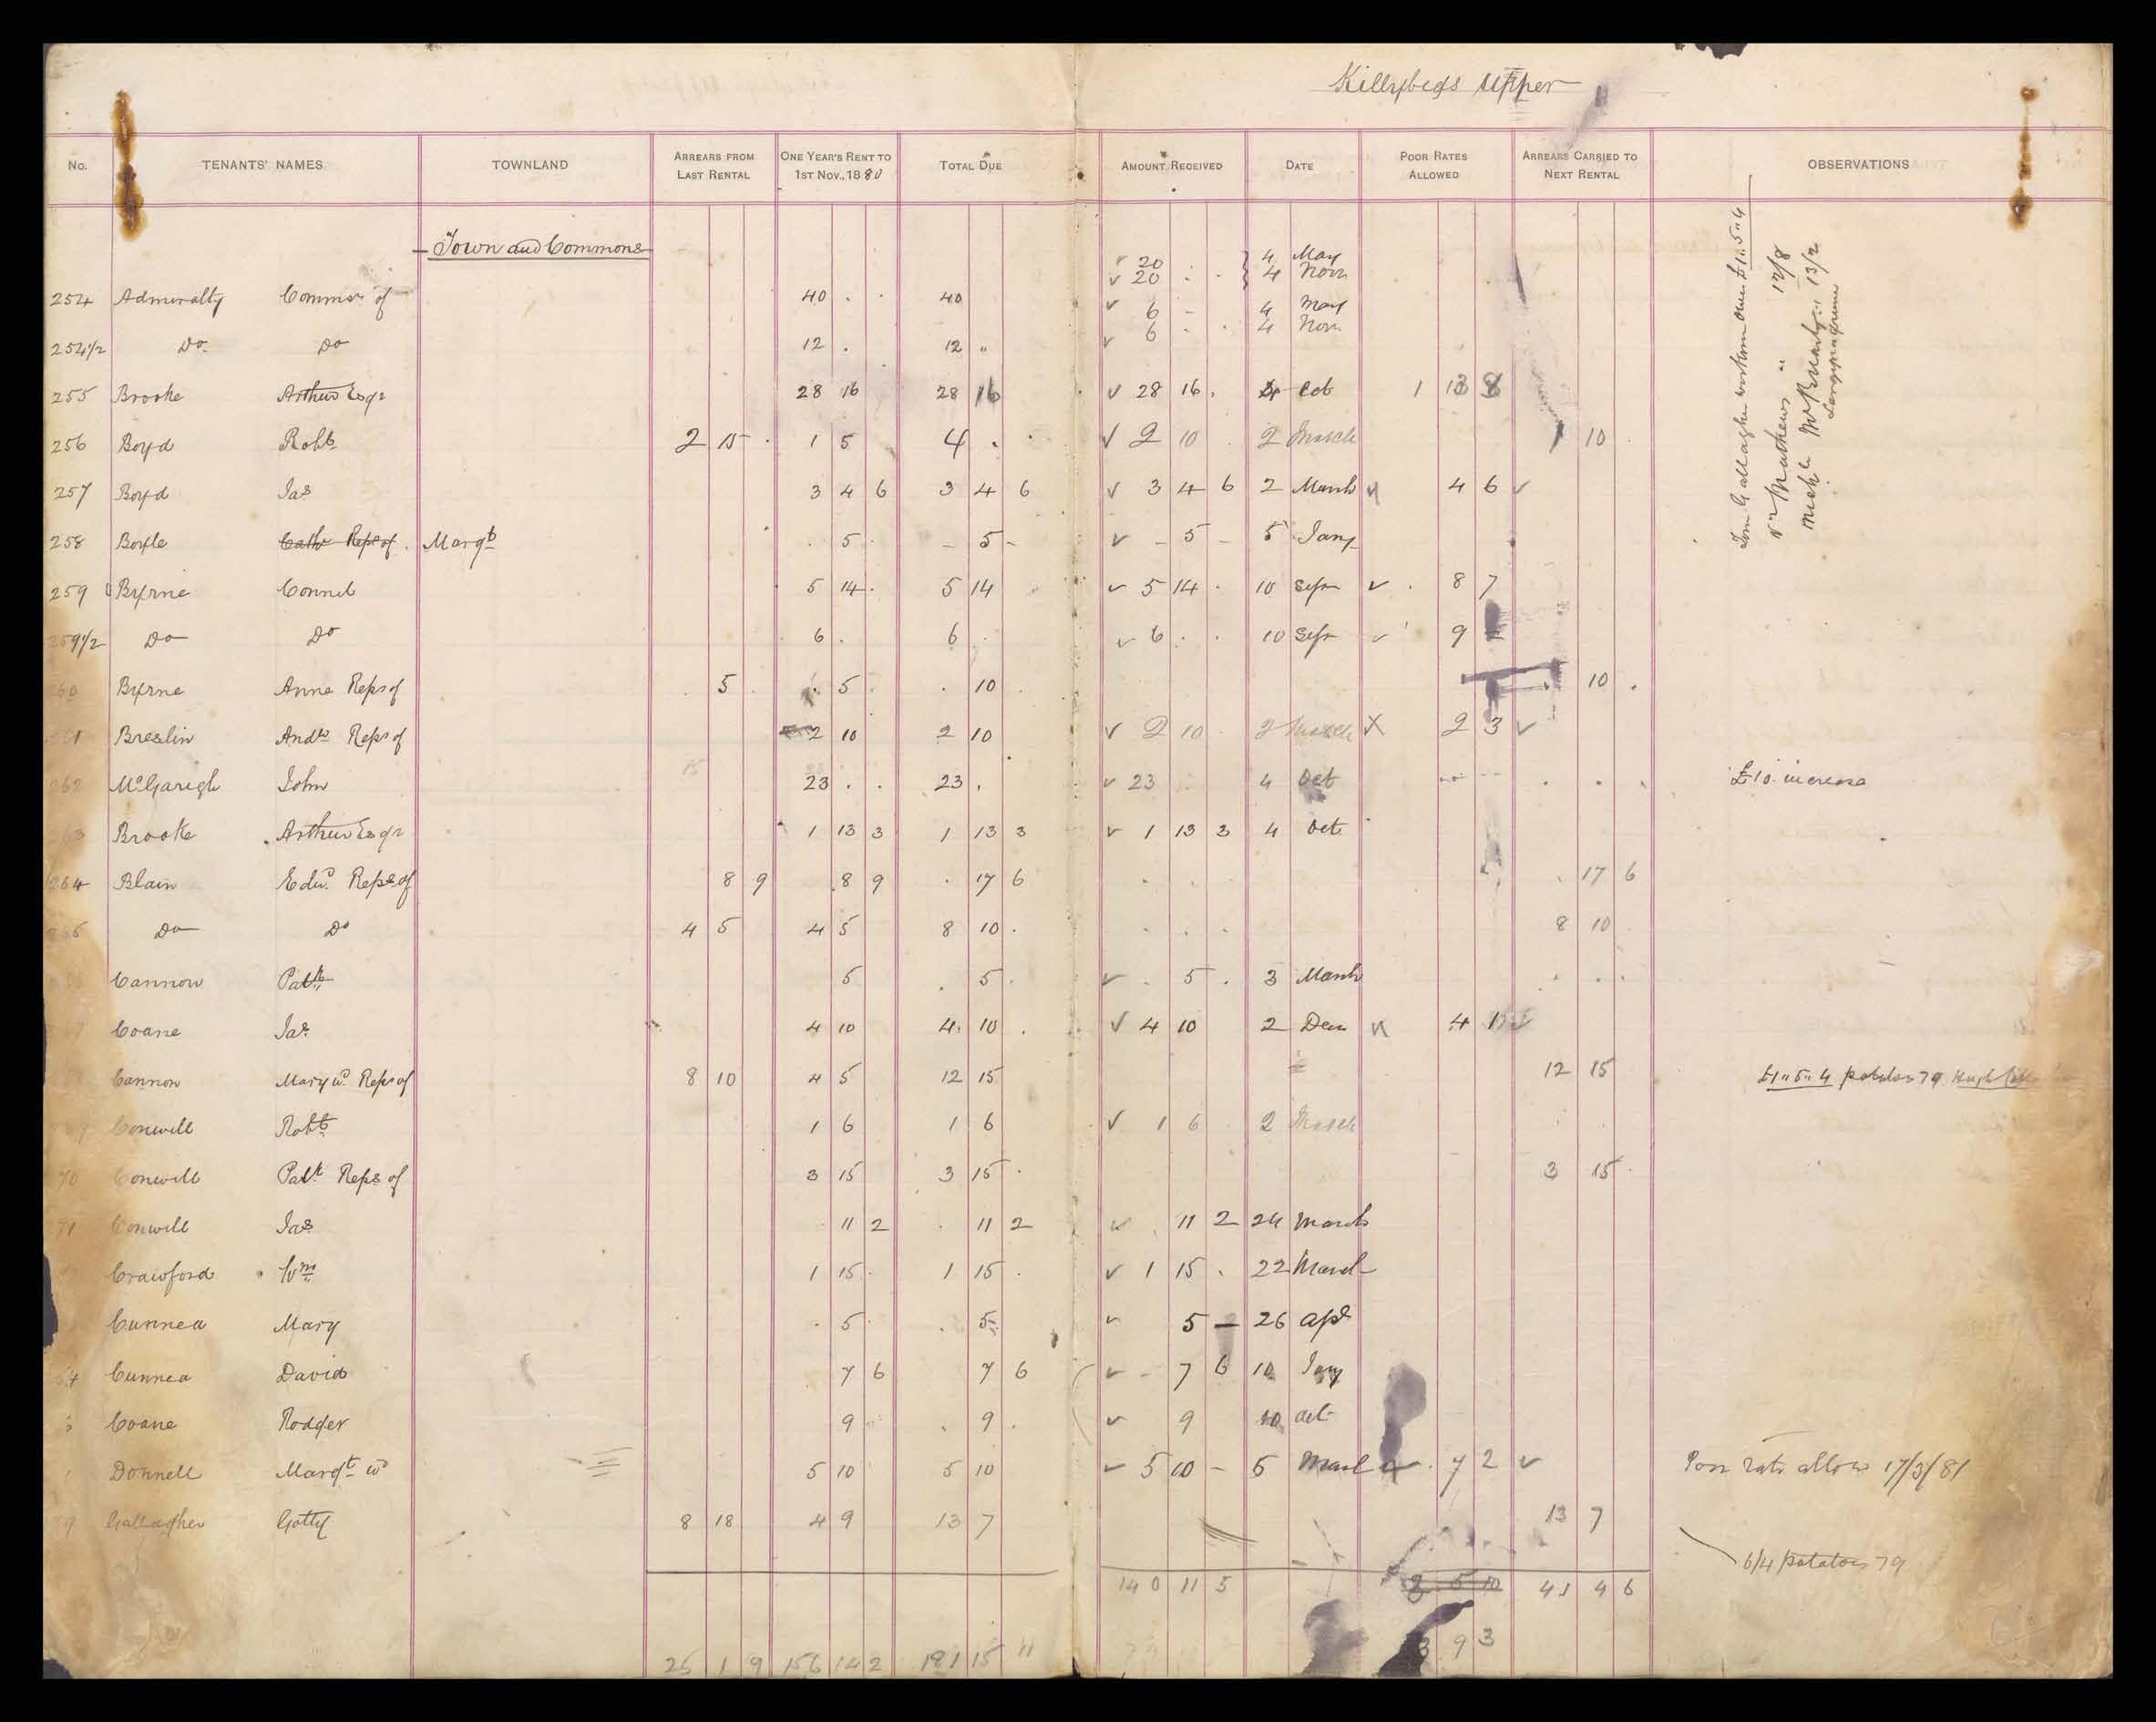 Killybegs Upper
No. TENANTS' NAMES TOWNLAND ARREARS FROM LAST RENTAL ONE YEAR'S RENT TO 1ST NOV., 1880 TOTAL DUE AMOUNT RECEIVED DATE POOR RATES ALLOWED ARREARS CARRIED TO NEXT RENTAL OBSERVATIONS
Town and Commons
20 4 May
20 4 Novr
254 Admiralty Commrs of 40 40
6 4 May
6 4 Novr
254 1/2 Do Do 12 12
255 Brooke Arthur Esqr 28 16 28 16 28 16 4 Oct 1
256 Boyd Robt 2 15 1 5 4 2 10 2 March 1 10
257 Boyd Jas 3 4 6 3 4 6 3 4 6 2 March 4 6
258 Boyle Cath Reps of Margt 5 5 5 5 Jany
259 Byrne Connel 5 14 5 14 5 14 10 Sepr 8 7
259 1/2 Do Do 6 6 6 10 Sepr 9
260 Byrne Anne Reps of 5 5 10 10
261 Breslin Andw Reps of 2 10 2 10 2 10 2 March 2 3
262 McGarigh John 23 23 23 4 Oct £10 increase
263 Brooke Arthur Esqr 1 13 3 1 13 3 1 13 3 4 Oct
264 Blain Edwd Reps of 8 9 8 9 17 6 17 6
265 Do Do 4 5 4 5 8 10 8 10
Cannon Patk 5 5 5 3 March
7 Coane Jas 4 10 4 10 4 10 2 Decr 4
Cannon Mary wd Reps of 8 10 4 5 12 15 12 15 £1 " 5 " 4 potatoes 79 Hugh
Conwell Robt 1 6 1 6 1 6 2 March
70 Conwell Patk Reps of 3 15 3 15 3 15
71 Conwell Jas 11 2 11 2 11 2 24 March
Crawford Wm 1 15 1 15 1 15 22 March
Cunnea Mary 5 5 5 – 26 Apl
4 Cunnea David 7 6 7 6 7 6 10 Jany
Coane Rodger 9 9 9 10 Oct
Donnell Margt wd 5 10 5 10 5 10 – 5 March 7 2 Poor rate allow 17/3/81
Gallagher Gatty 8 18 4 9 13 7 13 7
6/4 potatoes 79
140 11 5 2 5 10 41 4 6
25 1 9 156 14 2 181 15 11 3 9 3
Gallagher workman owes £1 " 5 " 4
Mathews " 12/8
Michl 13/2